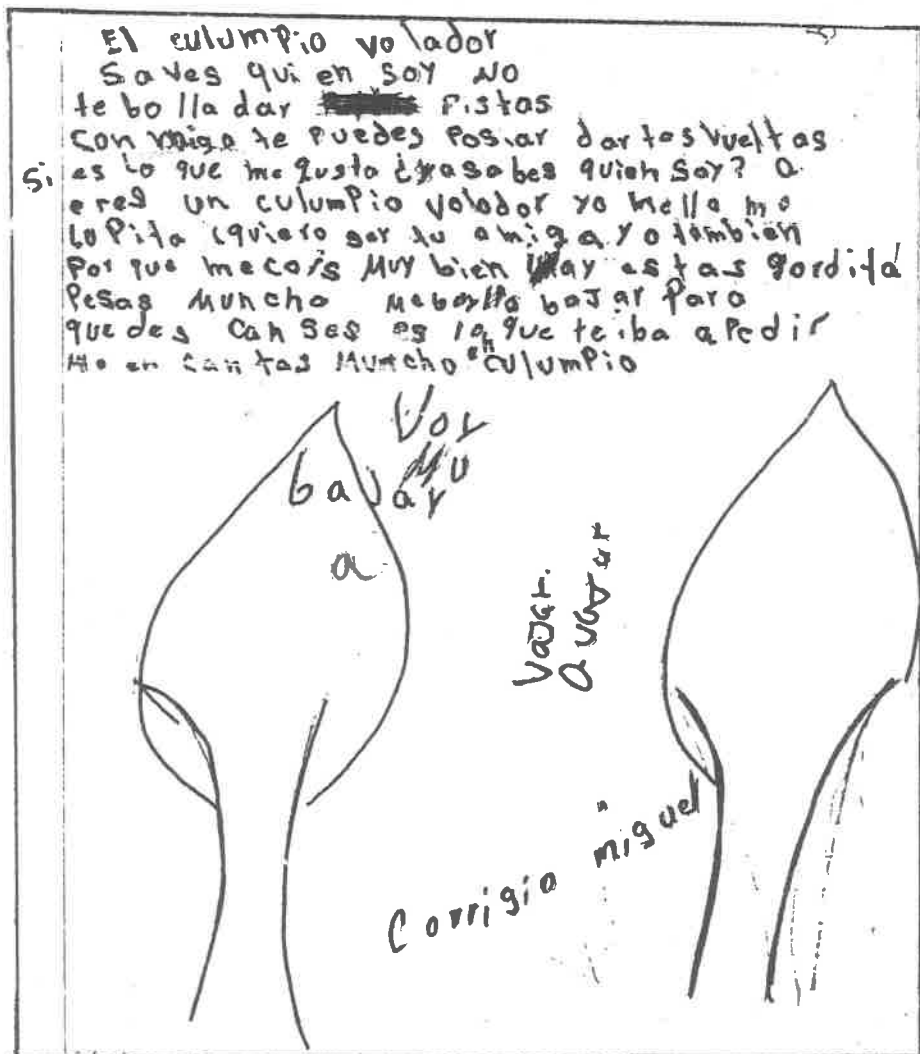 El culumpio volador
Saves quien soy NO
te bolla dar pistas
con migo te puedes posiar dartasvueltas
Si es lo que me gusta ¿yasabes quien soy? a
eres un culumpio volador yo mella mo
lopita ¿quiero ser tu amiga yo tambien
Por que mecois Muy bien Uay estas gordita
Pesas Muncho meboylla bajar para
que des canses es lo que teiba apedir
Me en cantas Muncho culumpio
Voy
Mu
bajar
a
Corrigio miguel